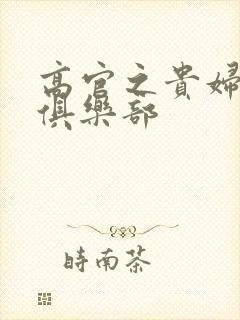 高官之貴婦
俱樂部
時南茶